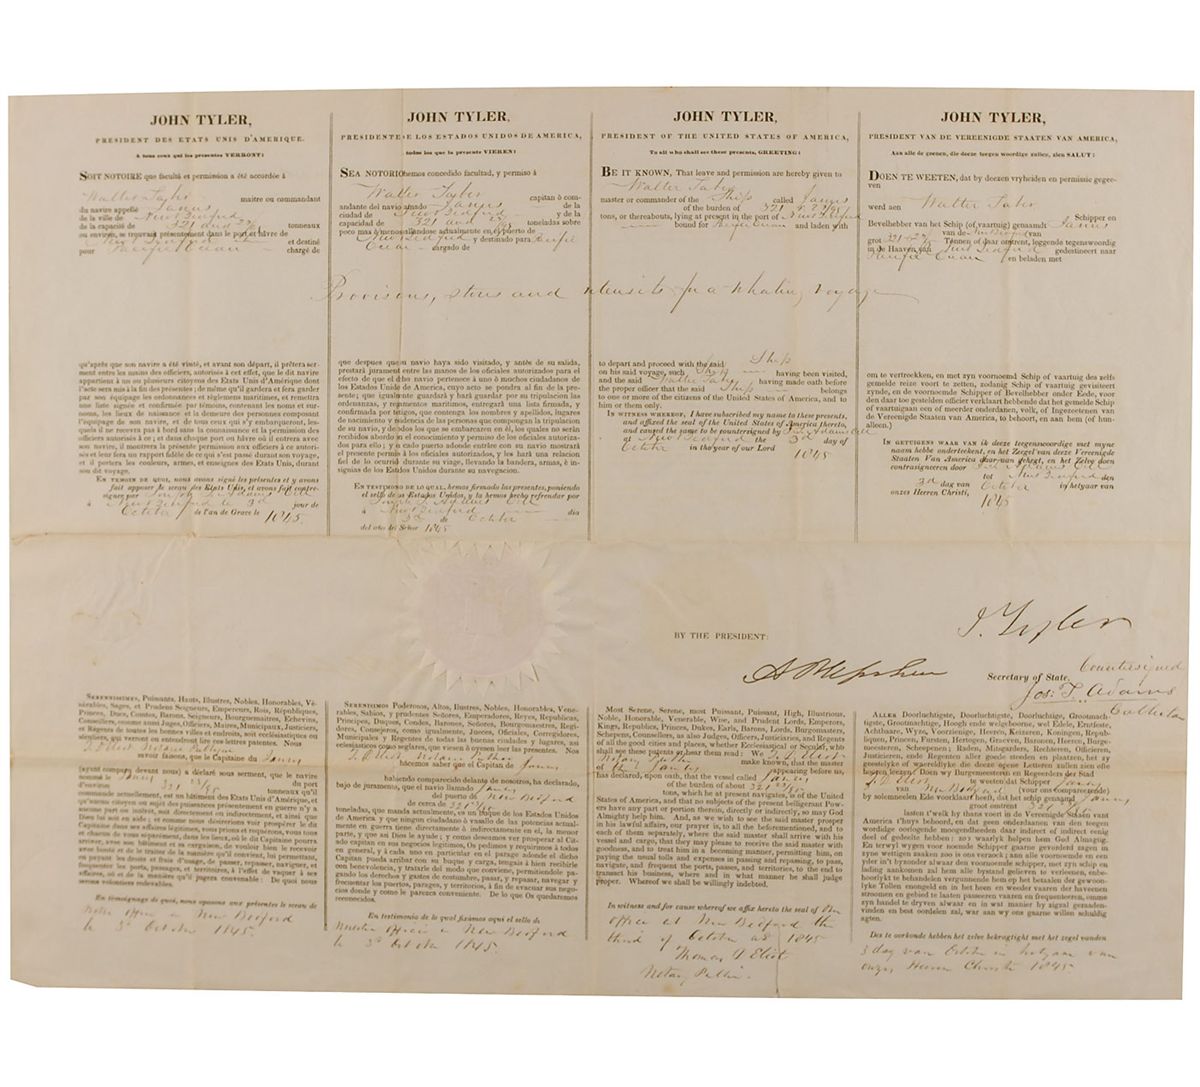 JOHN TYLER,
PRESIDENT DES ETATS UNIS D'AMERIQUE.
à tous ceux qui les présentes VERRONT:
SOIT NOTOIRE que faculté et permission a été accordée à
Walter Taber maitre ou commandant
du navire appellé Janus
de la ville de New Bedford
de la capacité de 321 and tonneaux
ou environ, se trouvant présentement dans le port et hâvre de
New Bedford et destiné
pour Pacific Ocean chargé de
JOHN TYLER,
PRESIDENTE DE LOS ESTADOS UNIDOS DE AMERICA,
todos los que la presente VIEREN:
SEA NOTORIO hemos concedido facultad, y permiso à
Walter Taber capitan ó com-
andante del navio amado Janus de la
ciudad de New Bedford y de la
capacidad de 321 and toneladas sobre
poco mas ó menos al actualmente en el puerto de
New Bedford y destinado para Pacific
Ocean cargado de
JOHN TYLER,
PRESIDENT OF THE UNITED STATES OF AMERICA,
To all who shall see these presents, GREETING:
BE IT KNOWN, That leave and permission are hereby given to
Walter Taber
master or commander of the Ship called Janus
of the burden of 321
tons, or thereabouts, lying at present in the port of New Bedford
bound for Pacific Ocean and laden with
JOHN TYLER,
PRESIDENT VAN DE VEREENIGDE STAATEN VAN AMERICA,
Aan alle de geenen, die deeze tegen woordige zullen, zien SALUT:
DOEN TE WEETEN, dat by deezen vryheiden en permissie gegee-
ven
werd aen Walter Taber
Schipper en
Bevelhebber van het Schip (of vaartuig) genaamdt Janus
van de New Bedford van
grot 321 Tonnen of daar omtrent, leggende tegenswoordig
in de Haaven van New Bedford gedestineert naar
Pacific Ocean en beladen met
Provisions, stores and utensils for a whaling voyage
qu'après que son navire a été visté, et avant son départ, il prêtera ser-
ment entre les mains des officiers, autorisés à cet effet, que le dit navire
appartient à un ou plusieurs citoyens des Etats Unis d'Amérique dont
l'acte sera mis à la fin des présentes; de même qu'il gardera et fera garder
par son équipage les ordonnances et règlemens maritimes, et remettra
une liste signée et confirmée par témoins, contenant les noms et sur-
noms, les lieux de naissance et la demeure des personnes composant
l'équipage de son navire, et de tous ceux qui s'y embarqueront, les-
quels il ne recevra pas à bord sans la connaissance et la permission des
officiers autorisés à ce; et dans chaque port ou hâvre où il entrera avec
son navire, il montrera la présente permission aux officiers à ce autori-
sés et leur fera un rapport fidèle de ce qui s'est passé durant son voyage,
et il portera les couleurs, armes, et enseignes des Etats Unis, durant
son dit voyage.
EN TEMOIN DE QUOI, nous avons signé les présentes et y avons
fait apposer le sceau des Etats Unis, et avons fait contre-
signer par Joseph T. Adams Coll
à New Bedford 3d jour de
October de l'an de Grace le 1845.
que despues que su navio haya sido visitado, y antes de su salida,
prestará juramento entre las manos de los oficiales autorizados para el
efecto de que el dicho navio pertenece à uno ó muchos ciudadanos de
los Estados Unidos de America, cuyo acto se pondra al fin de la pre-
sente; que igualmente guardará y hará guardar por su tripulacion las
ordenanzas, y reglamentos maritimos, entregará una lista firmada, y
confirmada por testigos, que contenga los nombres y apellidos, lugares
de nacimiento y residencia de las personas que compongan la tripulacion
de su navio, y de todos los que se embarcasen en él, los quales no serán
recibidos abordo sin el conocimiento y permiso de los oficiales autoriza-
dos para ello; y en cada puerto adonde entráre con su navio mostrará
el presente permiso à los oficiales autorizados, y les hará una relacion
fiel de lo ocurrido durante su viage, llevando la bandera, armas, é in-
signias de los Estados Unidos durante su navegacion.
EN TESTIMONIO DE LO QUAL, hemos firmado las presentes, poniendo
el sello de los Estados Unidos, y la hemos hecho refrendar por
Joseph T. Adams Coll
à New Bedford dia
3d de October
del año del Señor 1845
to depart and proceed with the said Ship
on his said voyage, such Ship having been visited,
and the said Walter Taber having made oath before
the proper officer that the said Ship belongs
to one or more of the citizens of the United States of America, and to
him or them only.
IN WITNESS WHEREOF, I have subscribed my name to these presents,
and affixed the seal of the United States of America thereto,
and caused the same to be countersigned by Jos. T. Adams Coll
at New Bedford the 3d day of
October in the year of our Lord 1845
om te vertrekken, en met zyn voornoemd Schip of vaartuig des zelfs
gemelde reize voort te zetten, zodanig Schip of vaartuig gevisiteert
zynde, en de voornoemde Schipper of Bevelhebber onder Eede, voor
den daar toe gestelden officier verklaart hebbende dat het gemelde Schip
of vaartuig aan een of meerder onderdanen, volk, of Ingezeetenen van
de Vereenigde Staaten van America, to behoort, en aan hem (of hun
alleen.)
IN GETUIGENIS WAAR VAN ik deeze tegenswoordige met myne
naam hebbe onderteekent, en het Zeegel van deeze Vereenigde
Staaten Van America daar-van gehegt, en het Zelve doen
contrasigneeren door Jos. T. Adams Coll
tot New Bedford den
3d dag van October in het jaar van
onzes Heeren Christi, 1845
J. Tyler
BY THE PRESIDENT:
Secretary of State.
Countersigned
Jos: T. Adams
Collector
SERENISSIMES, Puissants, Hauts, Illustres, Nobles, Honorables, Vé-
nérables, Sages, et Prudens Seigneurs, Empereurs, Rois, Républiques,
Princes, Ducs, Comtes, Barons, Seigneurs, Bourguemaitres, Echevins,
Conseillers, comme aussi Juges, Officiers, Maires, Municipaux, Justiciers,
et Régents de toutes les bonnes villes et endroits, soit ecclésiastiques ou
séculiers, qui verront ou entendront lire ces lettres patentes. Nous
T. D. Eliot Notario Public
savoir faisons, que le Capitaine du Janus
(ayant comparu devant nous) a déclaré sous serment, que le navire
nommé le Janus du port
d'environ 321 tonneaux qu'il
commande actuellement, est un bâtiment des Etats Unis d'Amérique, et
qu'aucuns citoyen ou sujet des puissances présentement en guerre n'y a
aucune part ou intéret, soit directement ou indirectement, et ainsi que
Dieu lui soit en aide; et comme nous désirerions voir prospérer le dit
Capitaine dans ses affaires légitimes, vous prions et requérons, vous tous
et chacun de vous séparément, dans les lieux, où le dit Capitaine pourra
arriver, avec son bâtiment et sa cargaison, de vouloir bien le recevoir
avec bonté et de le traiter de la manière qu'il convient, lui permettant,
en payant les droits et frais d'usage, de passer, repasser, naviguer, et
fréquenter les ports, passages, et territoires, à l'effet de vaquer à ses
affaires, où et de la manière qu'il jugera convenable: De quoi nous
serons volontiers redevables.
En témoignage de quoi, nous apposons aux présentes le sceau de
Notre office in New Bedford
le 3d October 1845.
SERENISIMOS Poderosos, Altos, Ilustres, Nobles, Honorables, Vene-
rables, Sabios, y prudentes Señores, Emperadores, Reyes, Republicas,
Principes, Duques, Condes, Barones, Señores, Bourguemaestres, Regi-
dores, Consejeros, como igualmente, Jueces, Oficiales, Corregidores,
Municipales y Regentes de todas las buenas ciudades y lugares, asi
eclesiasticos como seglares, que viesen ó oyesen leer las presentes. Nos
T. Eliot Notario Public
hacemos saber que el Capitan de Janus
habiendo comparecido delante de nosotros, ha declarado,
bajo de juramento, que el navio llamado Janus
del puerto de New Bedford
de cerca de 321
toneladas, que manda actualmente, es un buque de los Estados Unidos
de America y que ningun ciudadano ó vasallo de las potencias actual-
mente en guerra tiene directamente à indirectamente en el, la menor
parte, y que asi Dios le ayude; y como deseamos ver prosperar al Cit-
ado capitan en sus negocios legitimos, Os pedimos y requirimos à todos
en general, y à cada uno en particular en el parage adonde el dicho
Capitan pueda arribar con su buque y carga, tengais à bien recibirle
con benevolencia, y tratarle del modo que conviene, permitiendole pa-
gando los derechos y gastos de costumbre, pasar, y repasar, navegar y
frecuentar los puertos, parages, y territorios, à fin de evacuar sus nego-
cios donde y como pareciese conveniente. De lo que Os quedaremos
reconocidos.
En testimonia de lo qual fixamos aqui el sello de
Nuestro office in New Bedford
le 3d October 1845.
Most Serene, Serene, most Puissant, Puissant, High, Illustrious,
Noble, Honorable, Venerable, Wise, and Prudent Lords, Emperors,
Kings, Republics, Princes, Dukes, Earls, Barons, Lords, Burgomasters,
Schepens, Counsellors, as also Judges, Officers, Justiciaries, and Regents
of all the good cities and places, whether Ecclesiastical or Secular, who
shall see these patents or hear them read: We T. D. Eliot
Notary Public make known, that the master
of the Janus appearing before us,
has declared, upon oath, that the vessel called Janus
of the burden of about 321
tons, which he at present navigates, is of the United
States of America, and that no subjects of the present belligerant Pow-
ers have any part or portion therein, directly or indirectly, so may God
Almighty help him. And, as we wish to see the said master prosper
in his lawful affairs, our prayer is, to all the beforementioned, and to
each of them separately, where the said master shall arrive with his
vessel and cargo, that they may please to receive the said master with
goodness, and to treat him in a becoming manner, permitting him, on
paying the usual tolls and expenses in passing and repassing, to pass,
navigate, and frequent the ports, passes, and territories, to the end to
transact his business, where and in what manner he shall judge
proper. Whereof we shall be willingly indebted.
In witness and for cause whereof we affix hereto the seal of Our
office at New Bedford the
third of October ad 1845
Thomas D Eliot
Notary Public.
ALLES Doorluchtigste, Doorluchtigste, Doorluchtige, Grootmach-
tigste, Grootmachtige, Hoogh ende welgeborne, wel Edele, Erntfeste,
Achtbaare, Wyze, Voorzienige, Heeren, Keizeren, Koningen, Repub-
liquen, Princen, Fursten, Hertogen, Graeven, Baronnen, Heeren, Burge-
meesteren, Scheepenen; Raaden, Mitsgarders, Rechteren, Officieren,
Justicieren, ende Regenten aller goede steeden en plaatsen, het zy
geestelyke of wereldlyke die deeze opene Letteren zullen zien ofte
hooren leezen: Doen wy Burgemeesteren en Regeerders der Stad
T. D. Eliot te weeten dat Schipper Janus
van New Bedford (voor ons compareerende)
by solemneelen Eede voorklaart heeft, dat het schip genaamt Janus
groot omtrent 321
lasten t'welk hy thans voert in de Vereenigde Staaten van
America t'huys behoord, en dat geen onderdanen van den teegen
wordige oorlogende moogendheeden daar indirect of indirect eenig
deel of gedeelte hebben: zoo waarlyk helpen hem God Almagtig.
En terwyl wygen voor noemde Schipper gaarne gevordert zagen in
zyne wettigen zaaken zoo is ons versoek; aan alle voornoemde en een
yder in't bysonder alwaar den voornoemde schipper, met zyn schip en
lading aankomen zal hem alle bystand gelieven te verleenen, enbe-
hoorlyk te behandelen vergunnende hem op het betaalen der gewoon-
lyke Tollen enongeld en in het heen en weeder vaaren der haveenen
stroomen en gebied te laaten passeeren vaaren en frequenteeren, omme
zyn handel te dryven alwaar en in wat manier by zigzal geraaden-
vinden en best oordelen zal, war aan wy ons gaarne willen schuldig
agten.
Des te oorkonde hebben het zelve bekragtight met het zegel vanden
3 day van October in hetjaar van
onze, Heeren Christi 1845